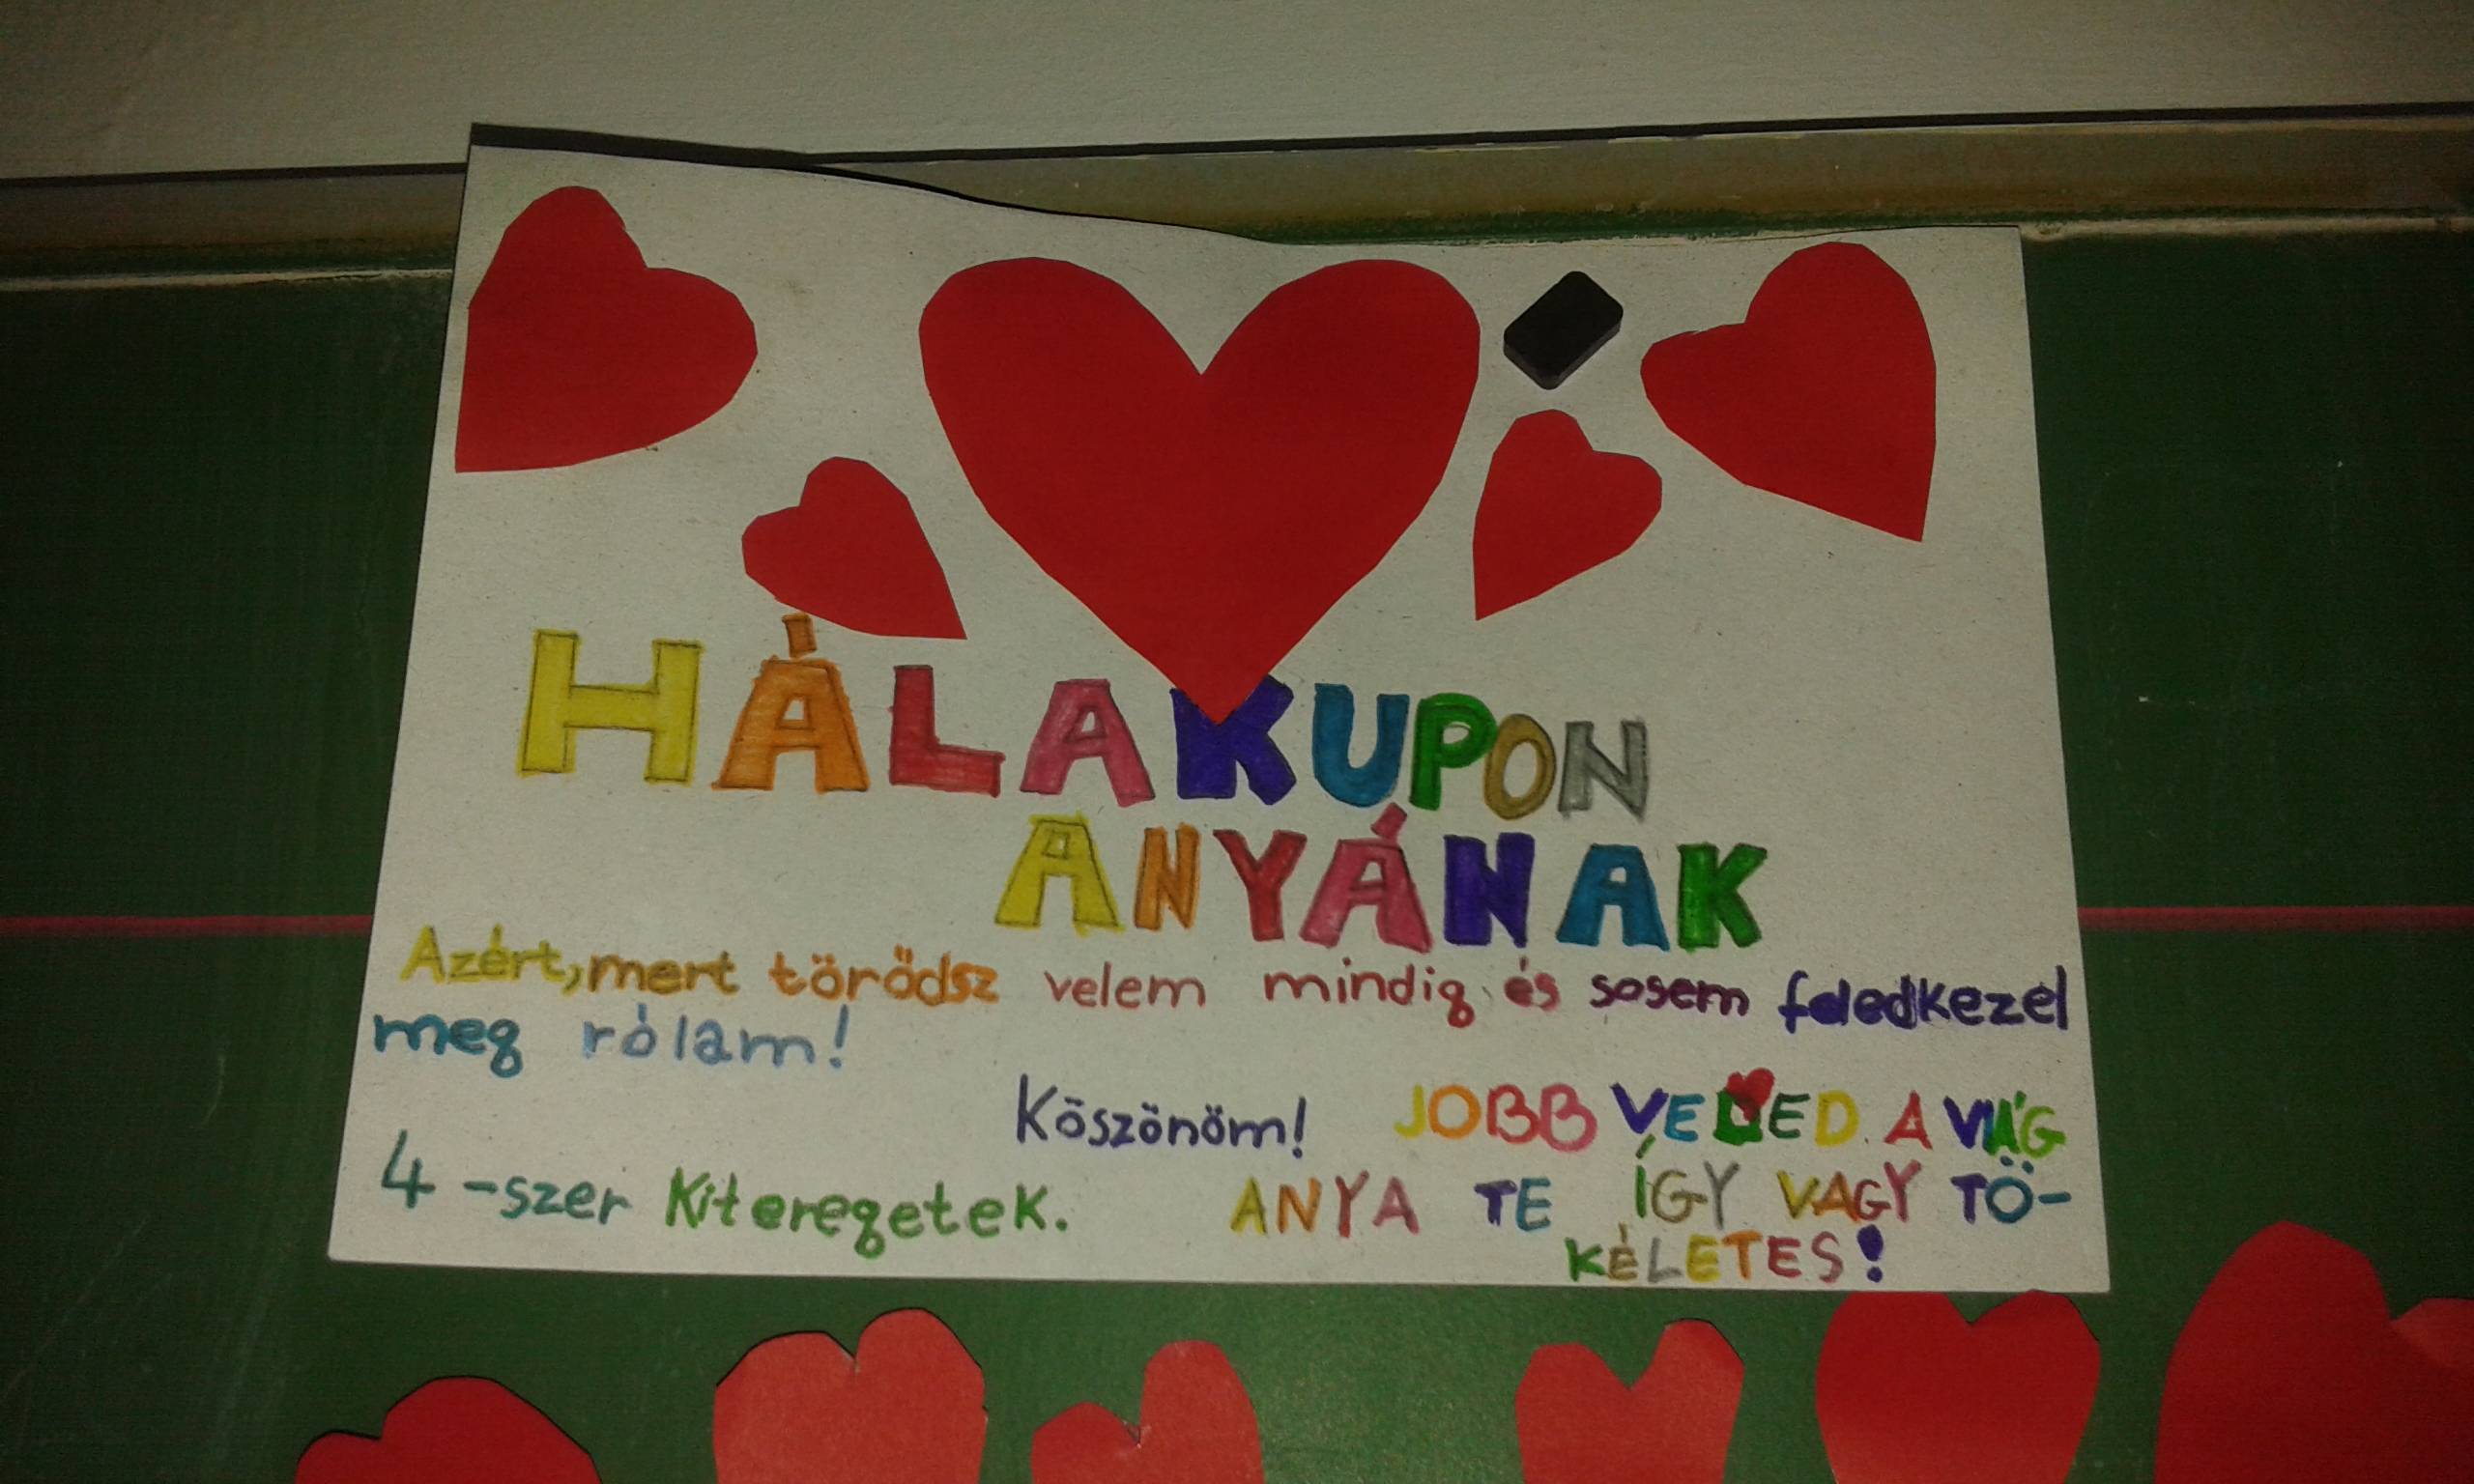 HÁLAKUPON
ANYÁNAK
Azért, mert törődsz velem mindig és sosem feledkezel
meg rólam!
Köszönöm! JOBB VELED A VIÁG
4-szer kiteregetek. ANYA TE ÍGY VAGY TÖ-
KÉLETES!